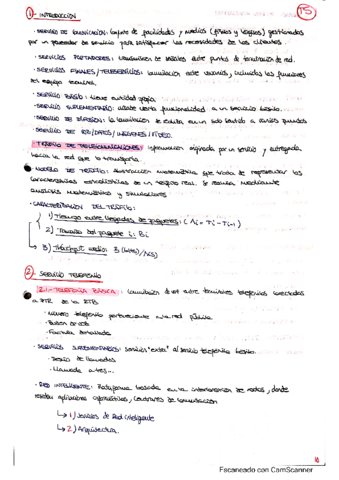 1- INTRODUCCIÓN
T5
- SERVICIO DE COMUNICACIÓN: conjunto de facilidades y medios (físicos y lógicos) gestionados
por un proveedor de servicio para satisfacer las necesidades de los clientes.
- SERVICIOS PORTADORES: transmisión de señales entre puntos de terminación de red.
- SERVICIOS FINALES/TELESERVICIOS: comunicación entre usuarios, incluidas las funciones
del equipo terminal.
- SERVICIO BÁSICO: tiene entidad propia
- SERVICIO SUPLEMENTARIO: añade funcionalidad a un servicio básico.
- SERVICIO DE DIFUSIÓN: la comunicación se realiza en un solo sentido a varios puntos
- SERVICIO DE VOZ/DATOS/IMÁGENES/VIDEO.
- TRÁFICO DE TELECOMUNICACIONES: información originada por un servicio y entregada
hacia la red que lo transporta.
MODELO DE TRÁFICO: abstracción matemática que trata de representar las
características estadísticas de un tráfico real. Se realiza mediante
análisis matemáticos y simulaciones
- CARACTERIZACIÓN DEL TRÁFICO:
1) Tiempo entre llegadas de paquetes: (Ai = Ti - Ti-1)
2) Tamaño del paquete i: Bi
3) Throughput medio: B (bits)/A(s)
2- SERVICIO TELEFÓNICO
2.1- TELEFONÍA BÁSICA: comunicación de voz entre terminales telefónicos conectados
a PTR de la RTB
- Número telefónico perteneciente a la red pública
- Buzón de voz
- Factura detallada
- SERVICIOS SUPLEMENTARIOS: servicios "extra" al servicio telefónico básico.
- Desvío de llamadas
- Llamada a tres...
- RED INTELIGENTE: Plataforma basada en la interconexión de nodos, donde
residen aplicaciones informáticas, centrales de conmutación
↳ 1) Servicios de Red Inteligente
↳ 2) Arquitectura.
Escaneado con CamScanner